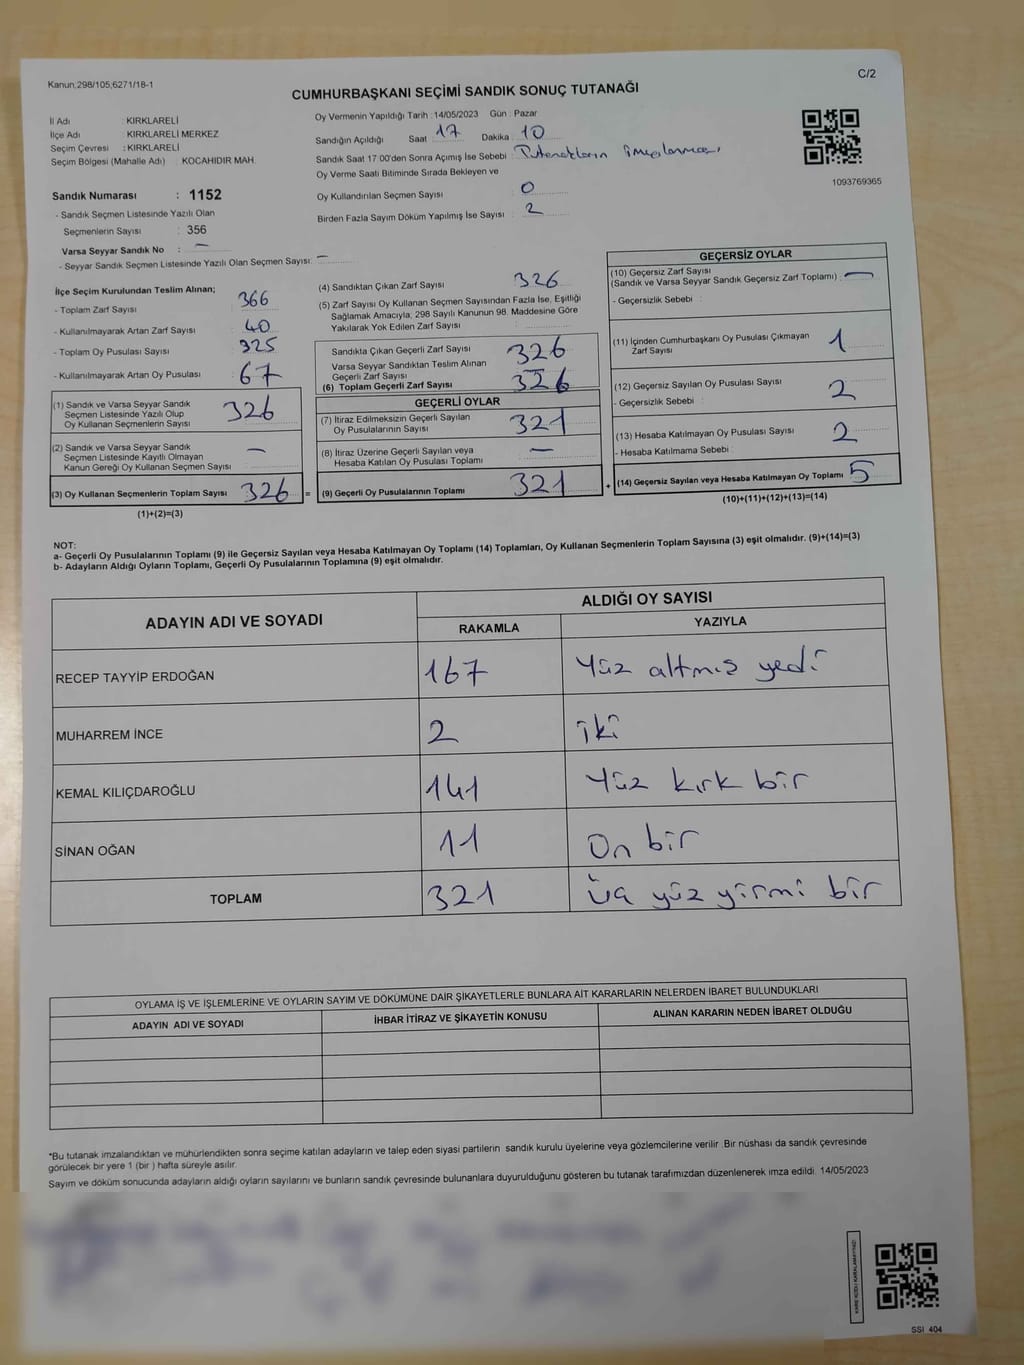 Kanun;298/105;6271/18-1
C/2
CUMHURBAŞKANI SEÇİMİ SANDIK SONUÇ TUTANAĞI
İl Adı : KIRKLARELİ
İlçe Adı : KIRKLARELİ MERKEZ
Seçim Çevresi : KIRKLARELİ
Seçim Bölgesi (Mahalle Adı) : KOCAHIDIR MAH.
Sandık Numarası : 1152
- Sandık Seçmen Listesinde Yazılı Olan
Seçmenlerin Sayısı : 356
Varsa Seyyar Sandık No : —
- Seyyar Sandık Seçmen Listesinde Yazılı Olan Seçmen Sayısı: —
Oy Vermenin Yapıldığı Tarih : 14/05/2023 Gün : Pazar
Sandığın Açıldığı Saat 17 Dakika 10
Sandık Saat 17:00'den Sonra Açımış İse Sebebi : Tutanakların imzalanması
Oy Verme Saati Bitiminde Sırada Bekleyen ve
Oy Kullandırılan Seçmen Sayısı : 0
Birden Fazla Sayım Döküm Yapılmış İse Sayısı : 2
1093769365
İlçe Seçim Kurulundan Teslim Alınan;
- Toplam Zarf Sayısı 366
- Kullanılmayarak Artan Zarf Sayısı 40
- Toplam Oy Pusulası Sayısı 325
- Kullanılmayarak Artan Oy Pusulası 67
(1) Sandık ve Varsa Seyyar Sandık
Seçmen Listesinde Yazılı Olup
Oy Kullanan Seçmenlerin Sayısı 326
(2) Sandık ve Varsa Seyyar Sandık
Seçmen Listesinde Kayıtlı Olmayan
Kanun Gereği Oy Kullanan Seçmen Sayısı —
(3) Oy Kullanan Seçmenlerin Toplam Sayısı 326 =
(1)+(2)=(3)
(4) Sandıktan Çıkan Zarf Sayısı 326
(5) Zarf Sayısı Oy Kullanan Seçmen Sayısından Fazla İse, Eşitliği
Sağlamak Amacıyla; 298 Sayılı Kanunun 98. Maddesine Göre
Yakılarak Yok Edilen Zarf Sayısı :
Sandıkta Çıkan Geçerli Zarf Sayısı 326
Varsa Seyyar Sandıktan Teslim Alınan
Geçerli Zarf Sayısı —
(6) Toplam Geçerli Zarf Sayısı 326
GEÇERLİ OYLAR
(7) İtiraz Edilmeksizin Geçerli Sayılan
Oy Pusulalarının Sayısı 321
(8) İtiraz Üzerine Geçerli Sayılan veya
Hesaba Katılan Oy Pusulası Toplamı —
(9) Geçerli Oy Pusulalarının Toplamı 321 +
GEÇERSİZ OYLAR
(10) Geçersiz Zarf Sayısı
(Sandık ve Varsa Seyyar Sandık Geçersiz Zarf Toplamı) : —
- Geçersizlik Sebebi :
(11) İçinden Cumhurbaşkanı Oy Pusulası Çıkmayan
Zarf Sayısı 1
(12) Geçersiz Sayılan Oy Pusulası Sayısı 2
- Geçersizlik Sebebi :
(13) Hesaba Katılmayan Oy Pusulası Sayısı 2
- Hesaba Katılmama Sebebi :
(14) Geçersiz Sayılan veya Hesaba Katılmayan Oy Toplamı 5
(10)+(11)+(12)+(13)=(14)
NOT:
a- Geçerli Oy Pusulalarının Toplamı (9) ile Geçersiz Sayılan veya Hesaba Katılmayan Oy Toplamı (14) Toplamları, Oy Kullanan Seçmenlerin Toplam Sayısına (3) eşit olmalıdır. (9)+(14)=(3)
b- Adayların Aldığı Oyların Toplamı, Geçerli Oy Pusulalarının Toplamına (9) eşit olmalıdır.
ADAYIN ADI VE SOYADI
ALDIĞI OY SAYISI
RAKAMLA YAZIYLA
RECEP TAYYİP ERDOĞAN 167 Yüz altmış yedi
MUHARREM İNCE 2 iki
KEMAL KILIÇDAROĞLU 141 Yüz kırk bir
SİNAN OĞAN 11 On bir
TOPLAM 321 Üç yüz yirmi bir
OYLAMA İŞ VE İŞLEMLERİNE VE OYLARIN SAYIM VE DÖKÜMÜNE DAİR ŞİKAYETLERLE BUNLARA AİT KARARLARIN NELERDEN İBARET BULUNDUKLARI
ADAYIN ADI VE SOYADI İHBAR İTİRAZ VE ŞİKAYETİN KONUSU ALINAN KARARIN NEDEN İBARET OLDUĞU
*Bu tutanak imzalandıktan ve mühürlendikten sonra seçime katılan adayların ve talep eden siyasi partilerin sandık kurulu üyelerine veya gözlemcilerine verilir. Bir nüshası da sandık çevresinde
görülecek bir yere 1 (bir ) hafta süreyle asılır.
Sayım ve döküm sonucunda adayların aldığı oyların sayılarını ve bunların sandık çevresinde bulunanlara duyurulduğunu gösteren bu tutanak tarafımızdan düzenlenerek imza edildi. 14/05/2023
KARE KODU KARALAMAYINIZ!
SSİ 404